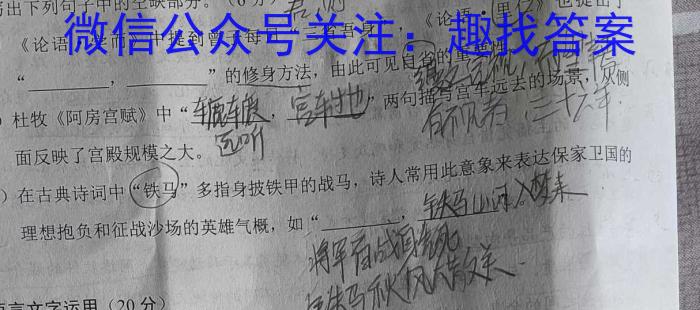 写出下列句子中的空缺部分。（6分）
《论语·里仁》也提出了
微信公众号关注：趣找答案
“________，________”的修身方法，由此可见自省的重要性
杜牧《阿房宫赋》中“辘辘远听，宫车过也”两句描写宫车远去的场景，从侧
面反映了宫殿规模之大。
有不见者，三十六年
）在古典诗词中“铁马”多指身披铁甲的战马，诗人常用此意象来表达保家卫国的
理想抱负和征战沙场的英雄气概，如“________，铁马冰河入梦来
铁马秋风大散关
言文字运用（20分）